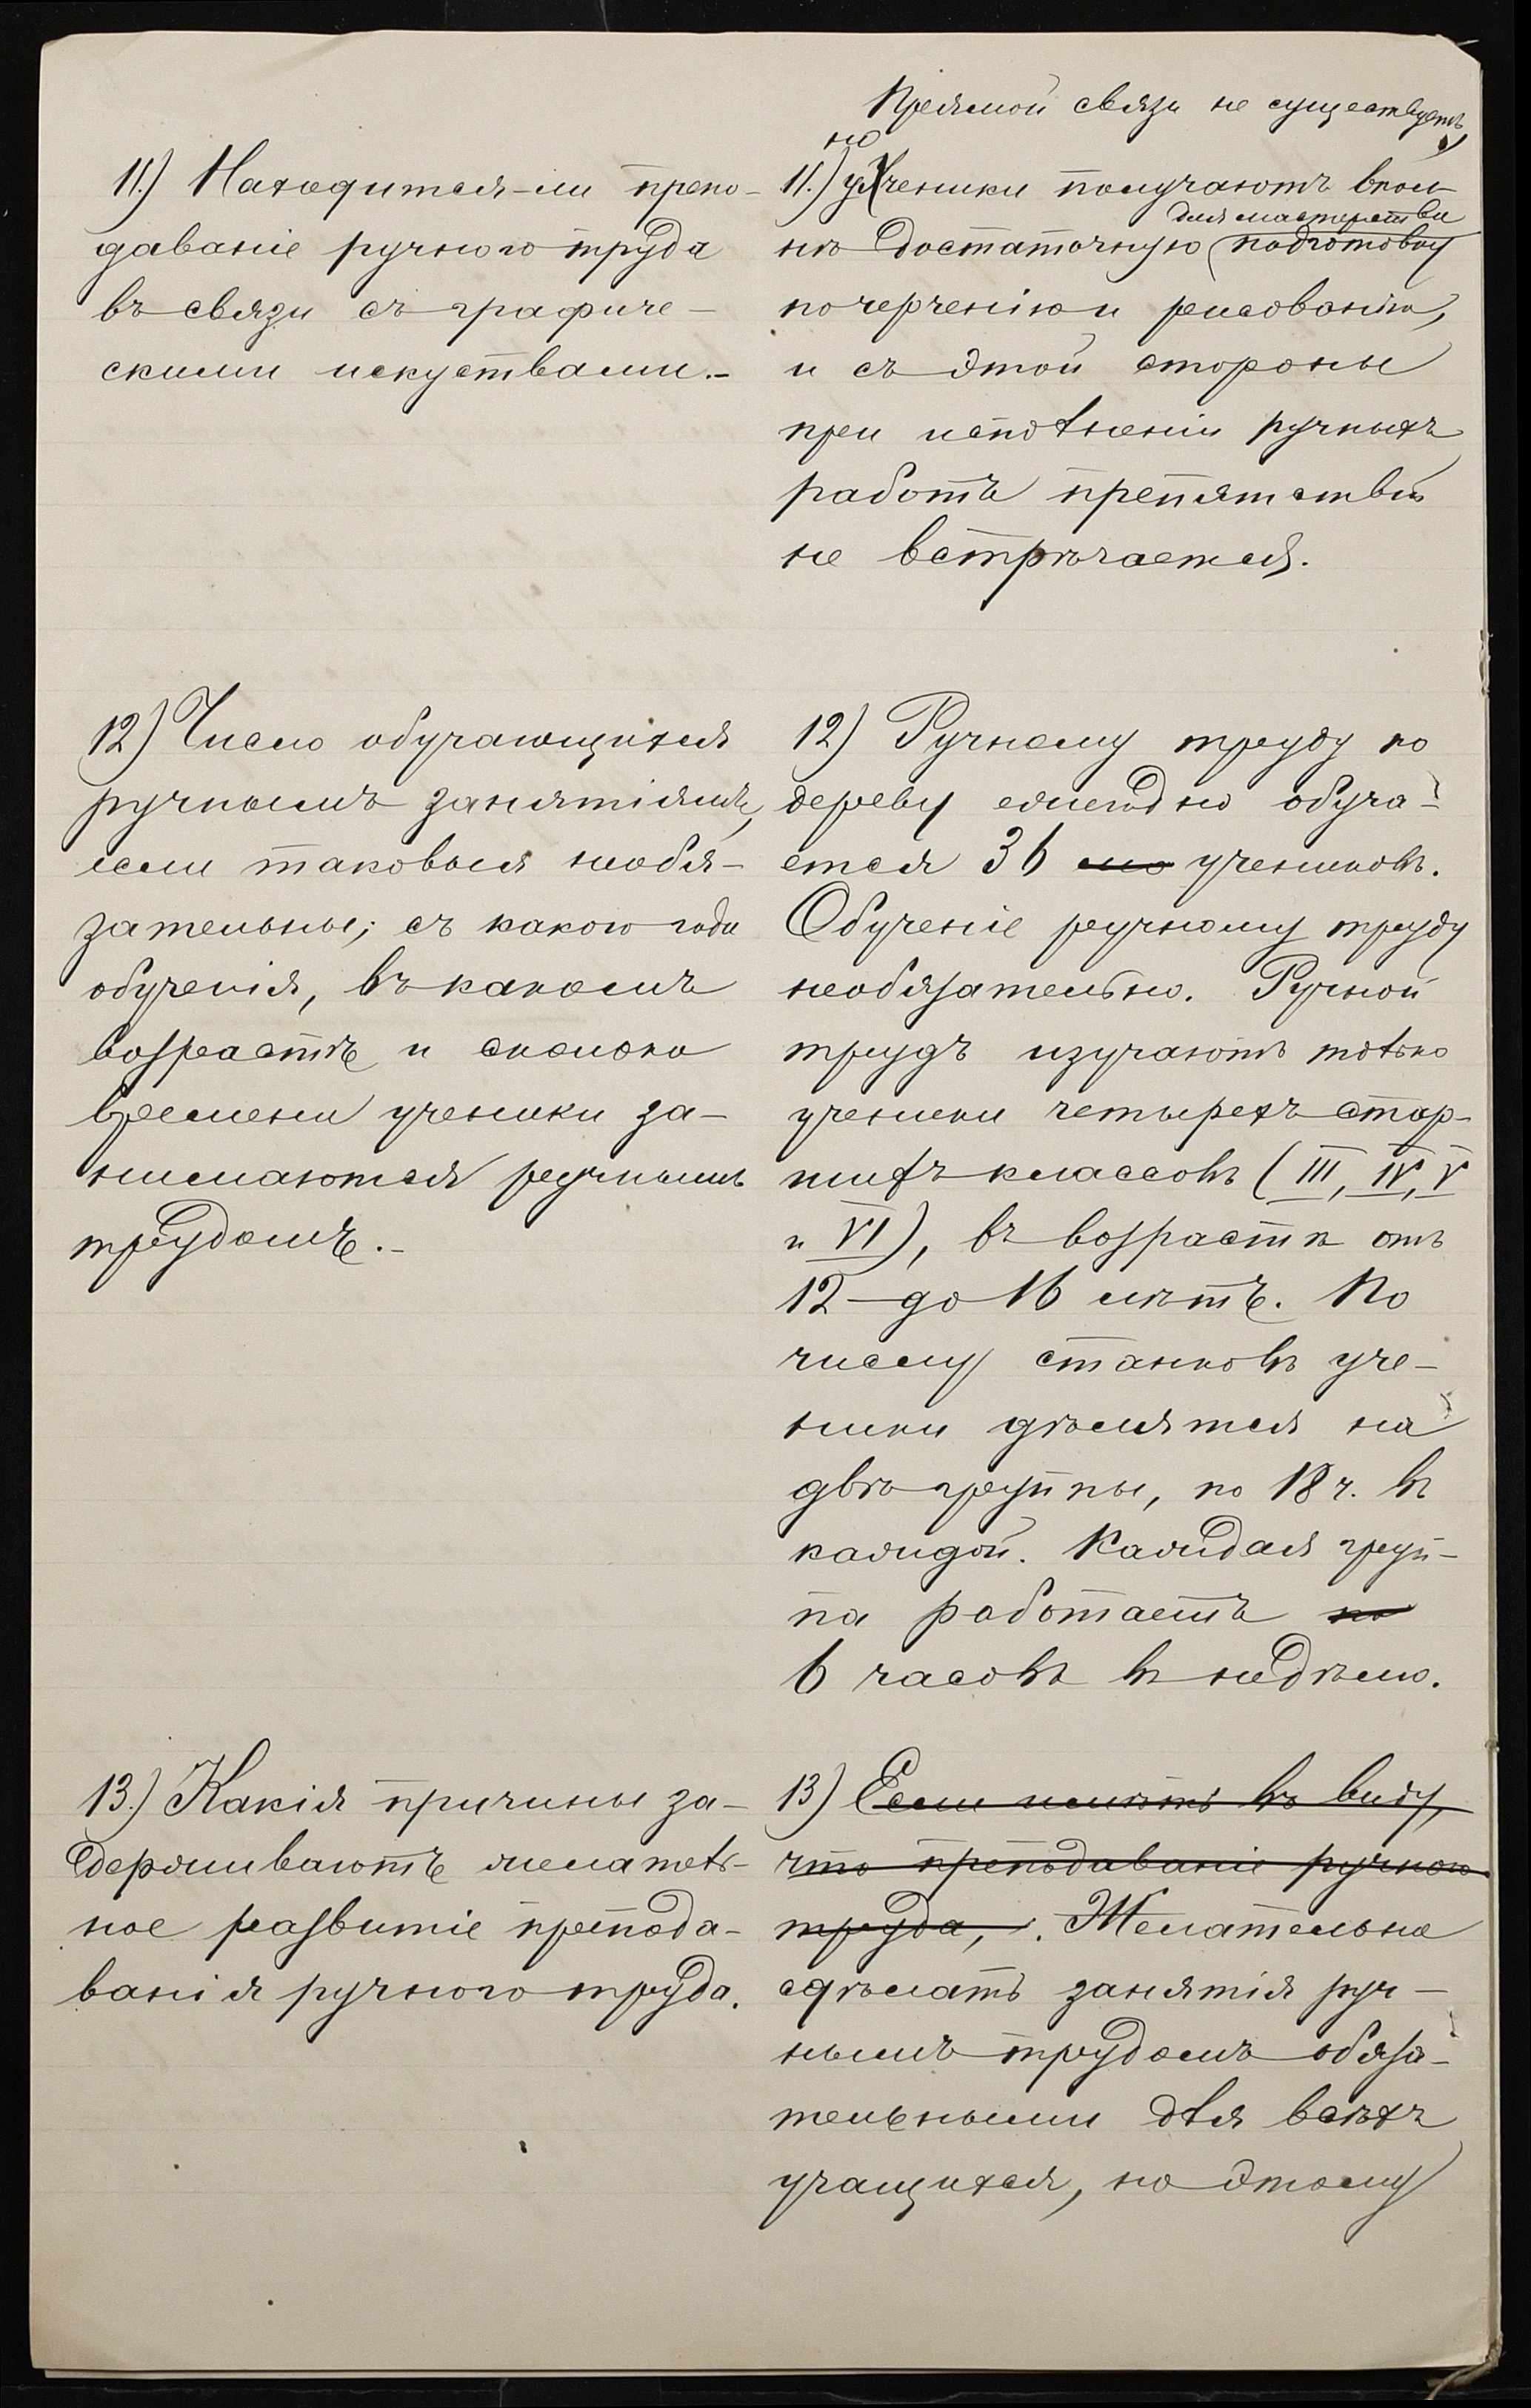 11.) Находится-ли препо-
даваніе ручного труда
въ связи съ графиче-
скими искуствами.-
Прямой связи не существуетъ,
но
11.) ученики получаютъ впол-
для мастерства
нѣ достаточную подготовку
по черченію и рисованію,
и съ этой стороны
при исполненіи ручныхъ
работъ препятствій
не встрѣчается.
12) Число обучающихся
ручнымъ занятіямъ,
если таковыя необя-
зательны; съ какого года
обученія, въ какомъ
возрастѣ и сколько
времени ученики за-
нимаются ручнымъ
трудомъ.-
12) Ручному труду по
дереву ежегодно обуча-
ется 36 учениковъ.
Обученіе ручному труду
необязательно. Ручной
трудъ изучаютъ только
ученики четырехъ стар-
шихъ классовъ (III, IV, V
и VI), въ возрастѣ отъ
12 до 16 лѣтъ. По
числу станковъ уче-
ники дѣлятся на
двѣ группы, по 18 ч. въ
каждой. Каждая груп-
па работаетъ по
6 часовъ въ недѣлю.
13.) Какія причины за-
держиваютъ желатель-
ное развитіе препода-
ванія ручного труда.
13) Если имѣть въ виду,
что преподаваніе ручного
труда, . Желательно
сдѣлать занятія руч-
нымъ трудомъ обяза-
тельными для всѣхъ
учащихся, но этому